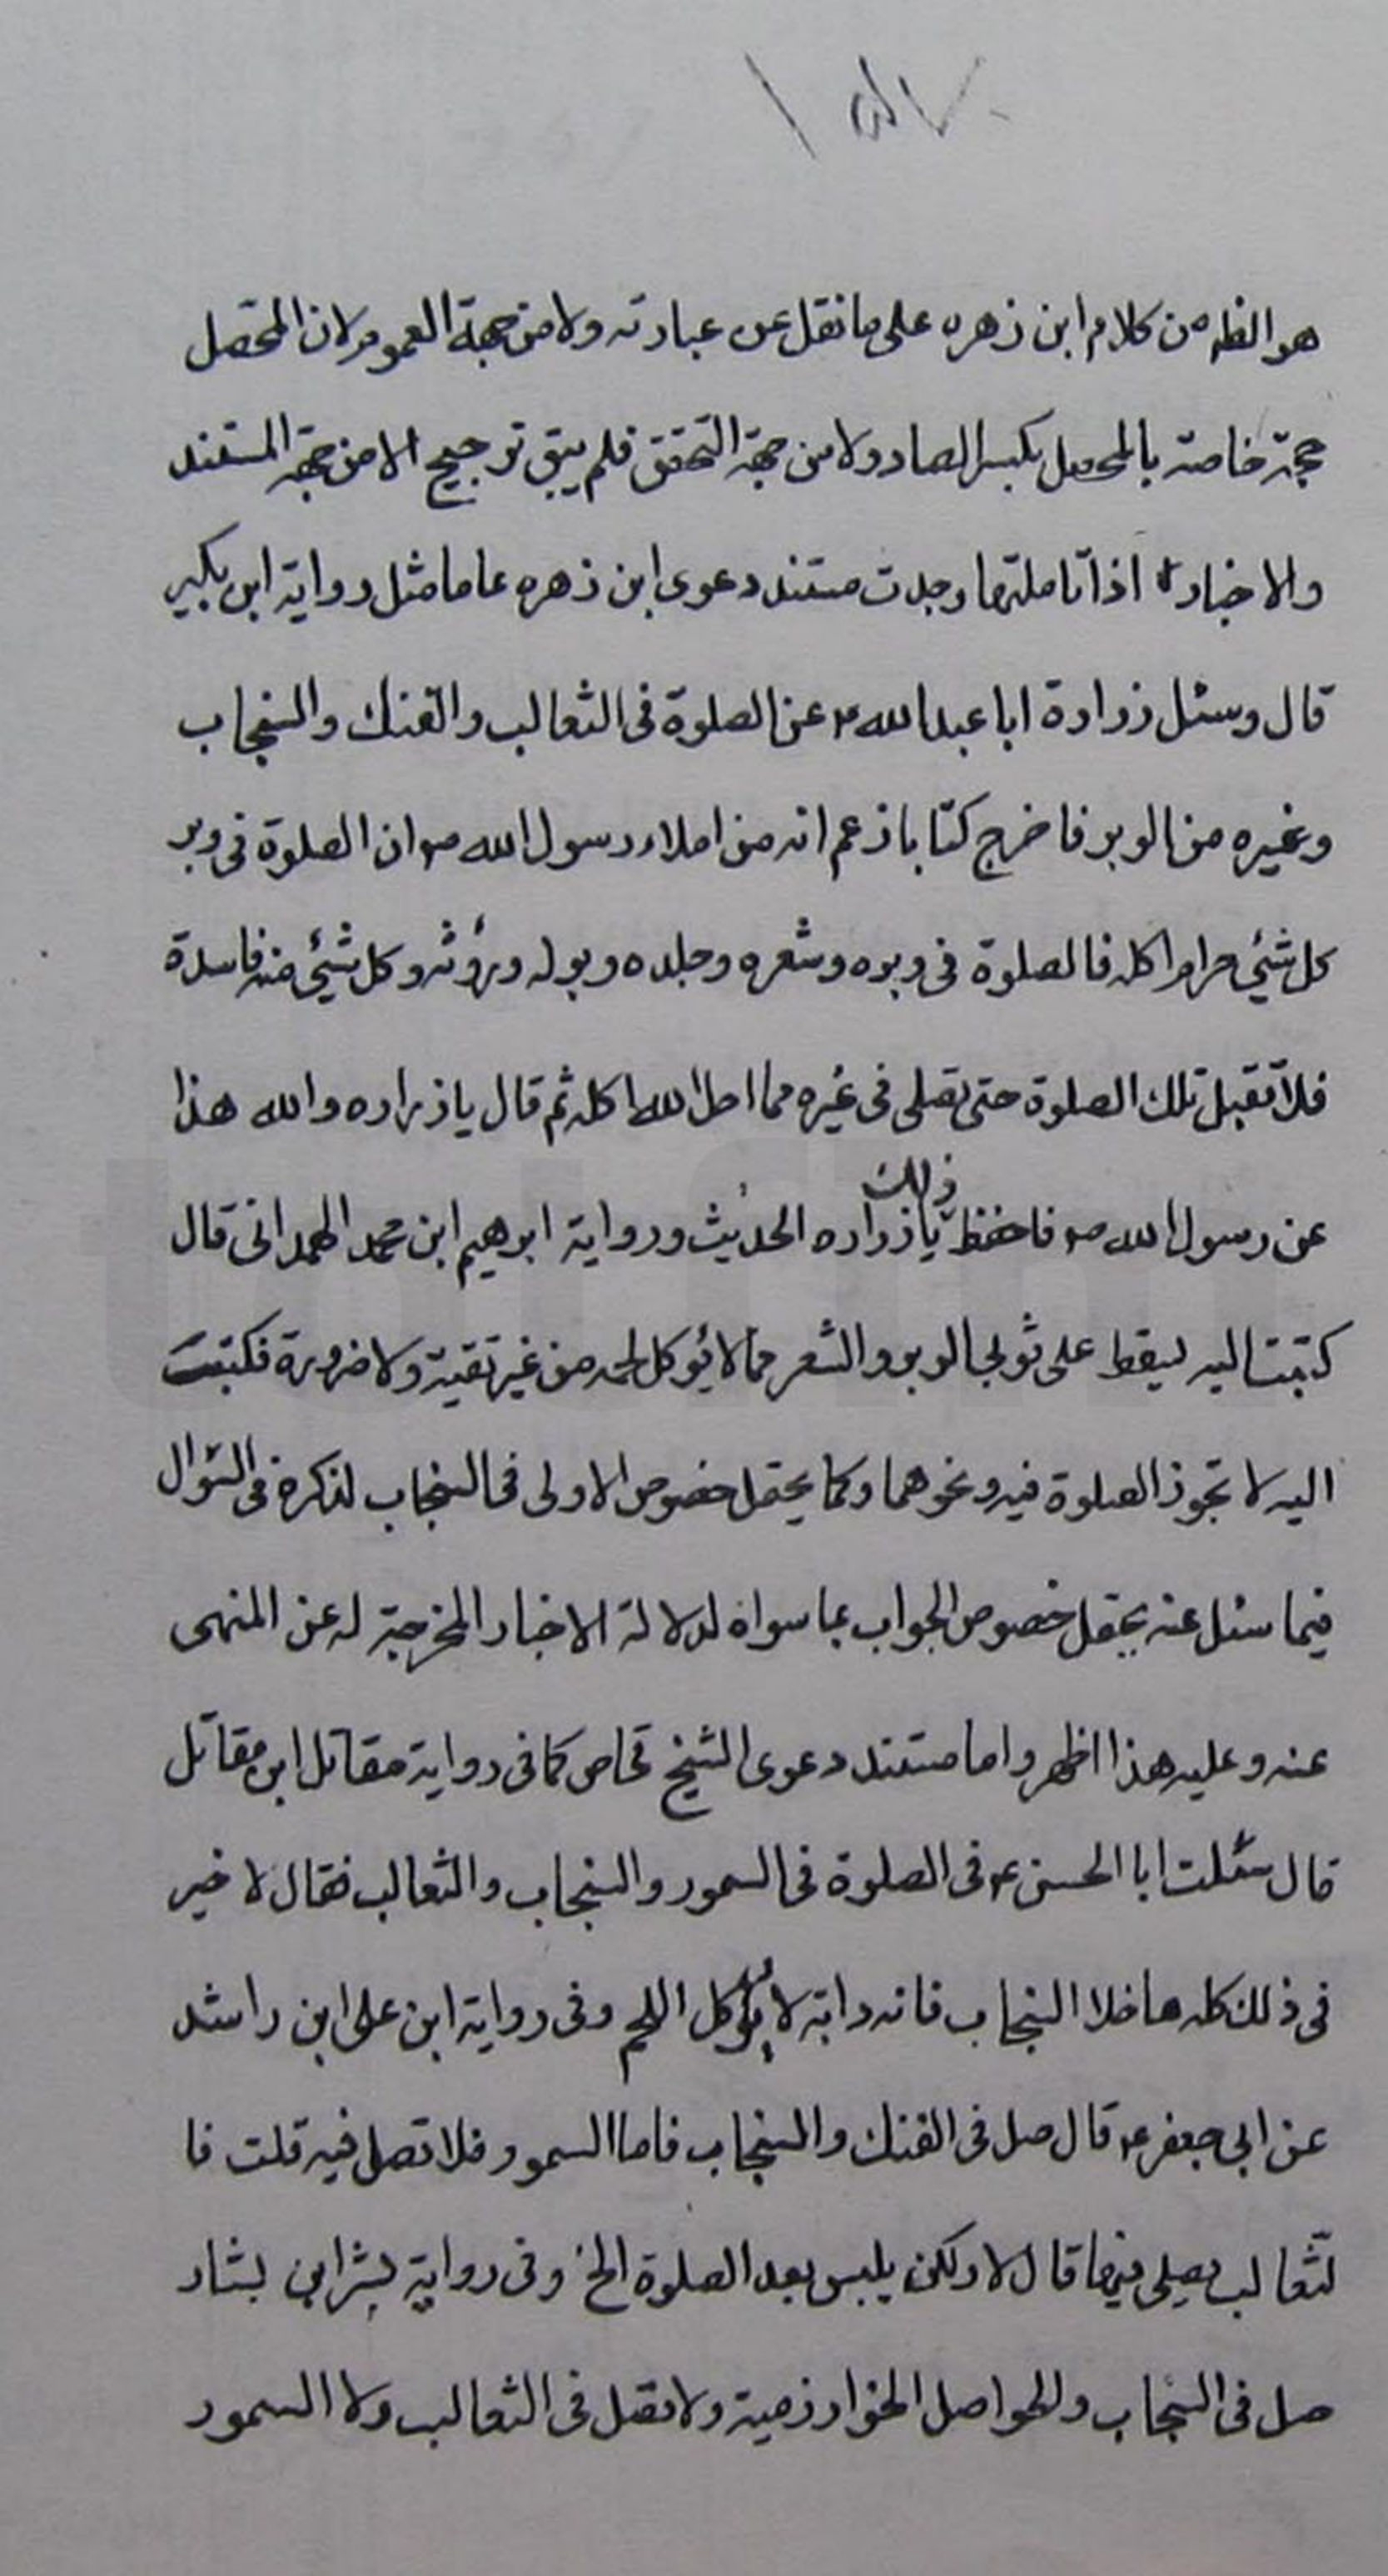 هو الظه من كلام ابن زهره على ما نقل عن عبارته ولا من جهة العموم لان المحصل
حجة خاصة بالمحصل بكسر الصاد ولا من جهة التحقق فلم يبق ترجيح الا من جهة المستند
والاخبار اذا تاملتها وجدت مستند دعوى ابن زهره عاما مثل رواية ابن بكير
قال وسئل زرارة ابا عبدالله ع عن الصلوة فى الثعالب والفنك والسنجاب
وغيره من الوبر فاخرج كتابا زعم انه من املاء رسول الله ص ان الصلوة فى وبر
كل شئي حرام اكله فالصلوة فى وبره وشعره وجلده وبوله وروثه وكل شئي منه فاسدة
فلا تقبل تلك الصلوة حتى تصلى فى غيره مما احل الله اكله ثم قال يا زراره والله هذا
عن رسول الله ص فاحفظ ذلك يا زراره الحديث ورواية ابرهيم ابن محمد الهمدانى قال
كتبت اليه يسقط على ثوبى الوبر والشعر مما لا يؤكل لحمه من غير تقية ولا ضرورة فكتبت
اليه لا تجوز الصلوة فيه ونحوهما وكما يحتمل خصوص الاولى فى السنجاب لذكره فى السؤال
فيما سئل عنه يحتمل خصوص الجواب بما سواه لدلالة الاخبار المخرجة له عن المنهى
عنه وعليه هذا اظهر واما مستند دعوى الشيخ فخاص كما فى رواية مقاتل ابن مقاتل
قال سئلت ابا الحسن ع فى الصلوة فى السمور والسنجاب والثعالب فقال لا خير
فى ذلك كله ما خلا السنجاب فانه دابة لا يؤكل اللحم وفى رواية ابن على ابن راشد
عن ابى جعفر ع قال صل فى الفنك والسنجاب فاما السمور فلا تصل فيه قلت فا
لثعالب يصلى فيها قال لا ولكن يلبس بعد الصلوة الخ وفى رواية بشر ابن بشار
صل فى السنجاب والحواصل الخوارزمية ولا تصل فى الثعالب ولا السمور